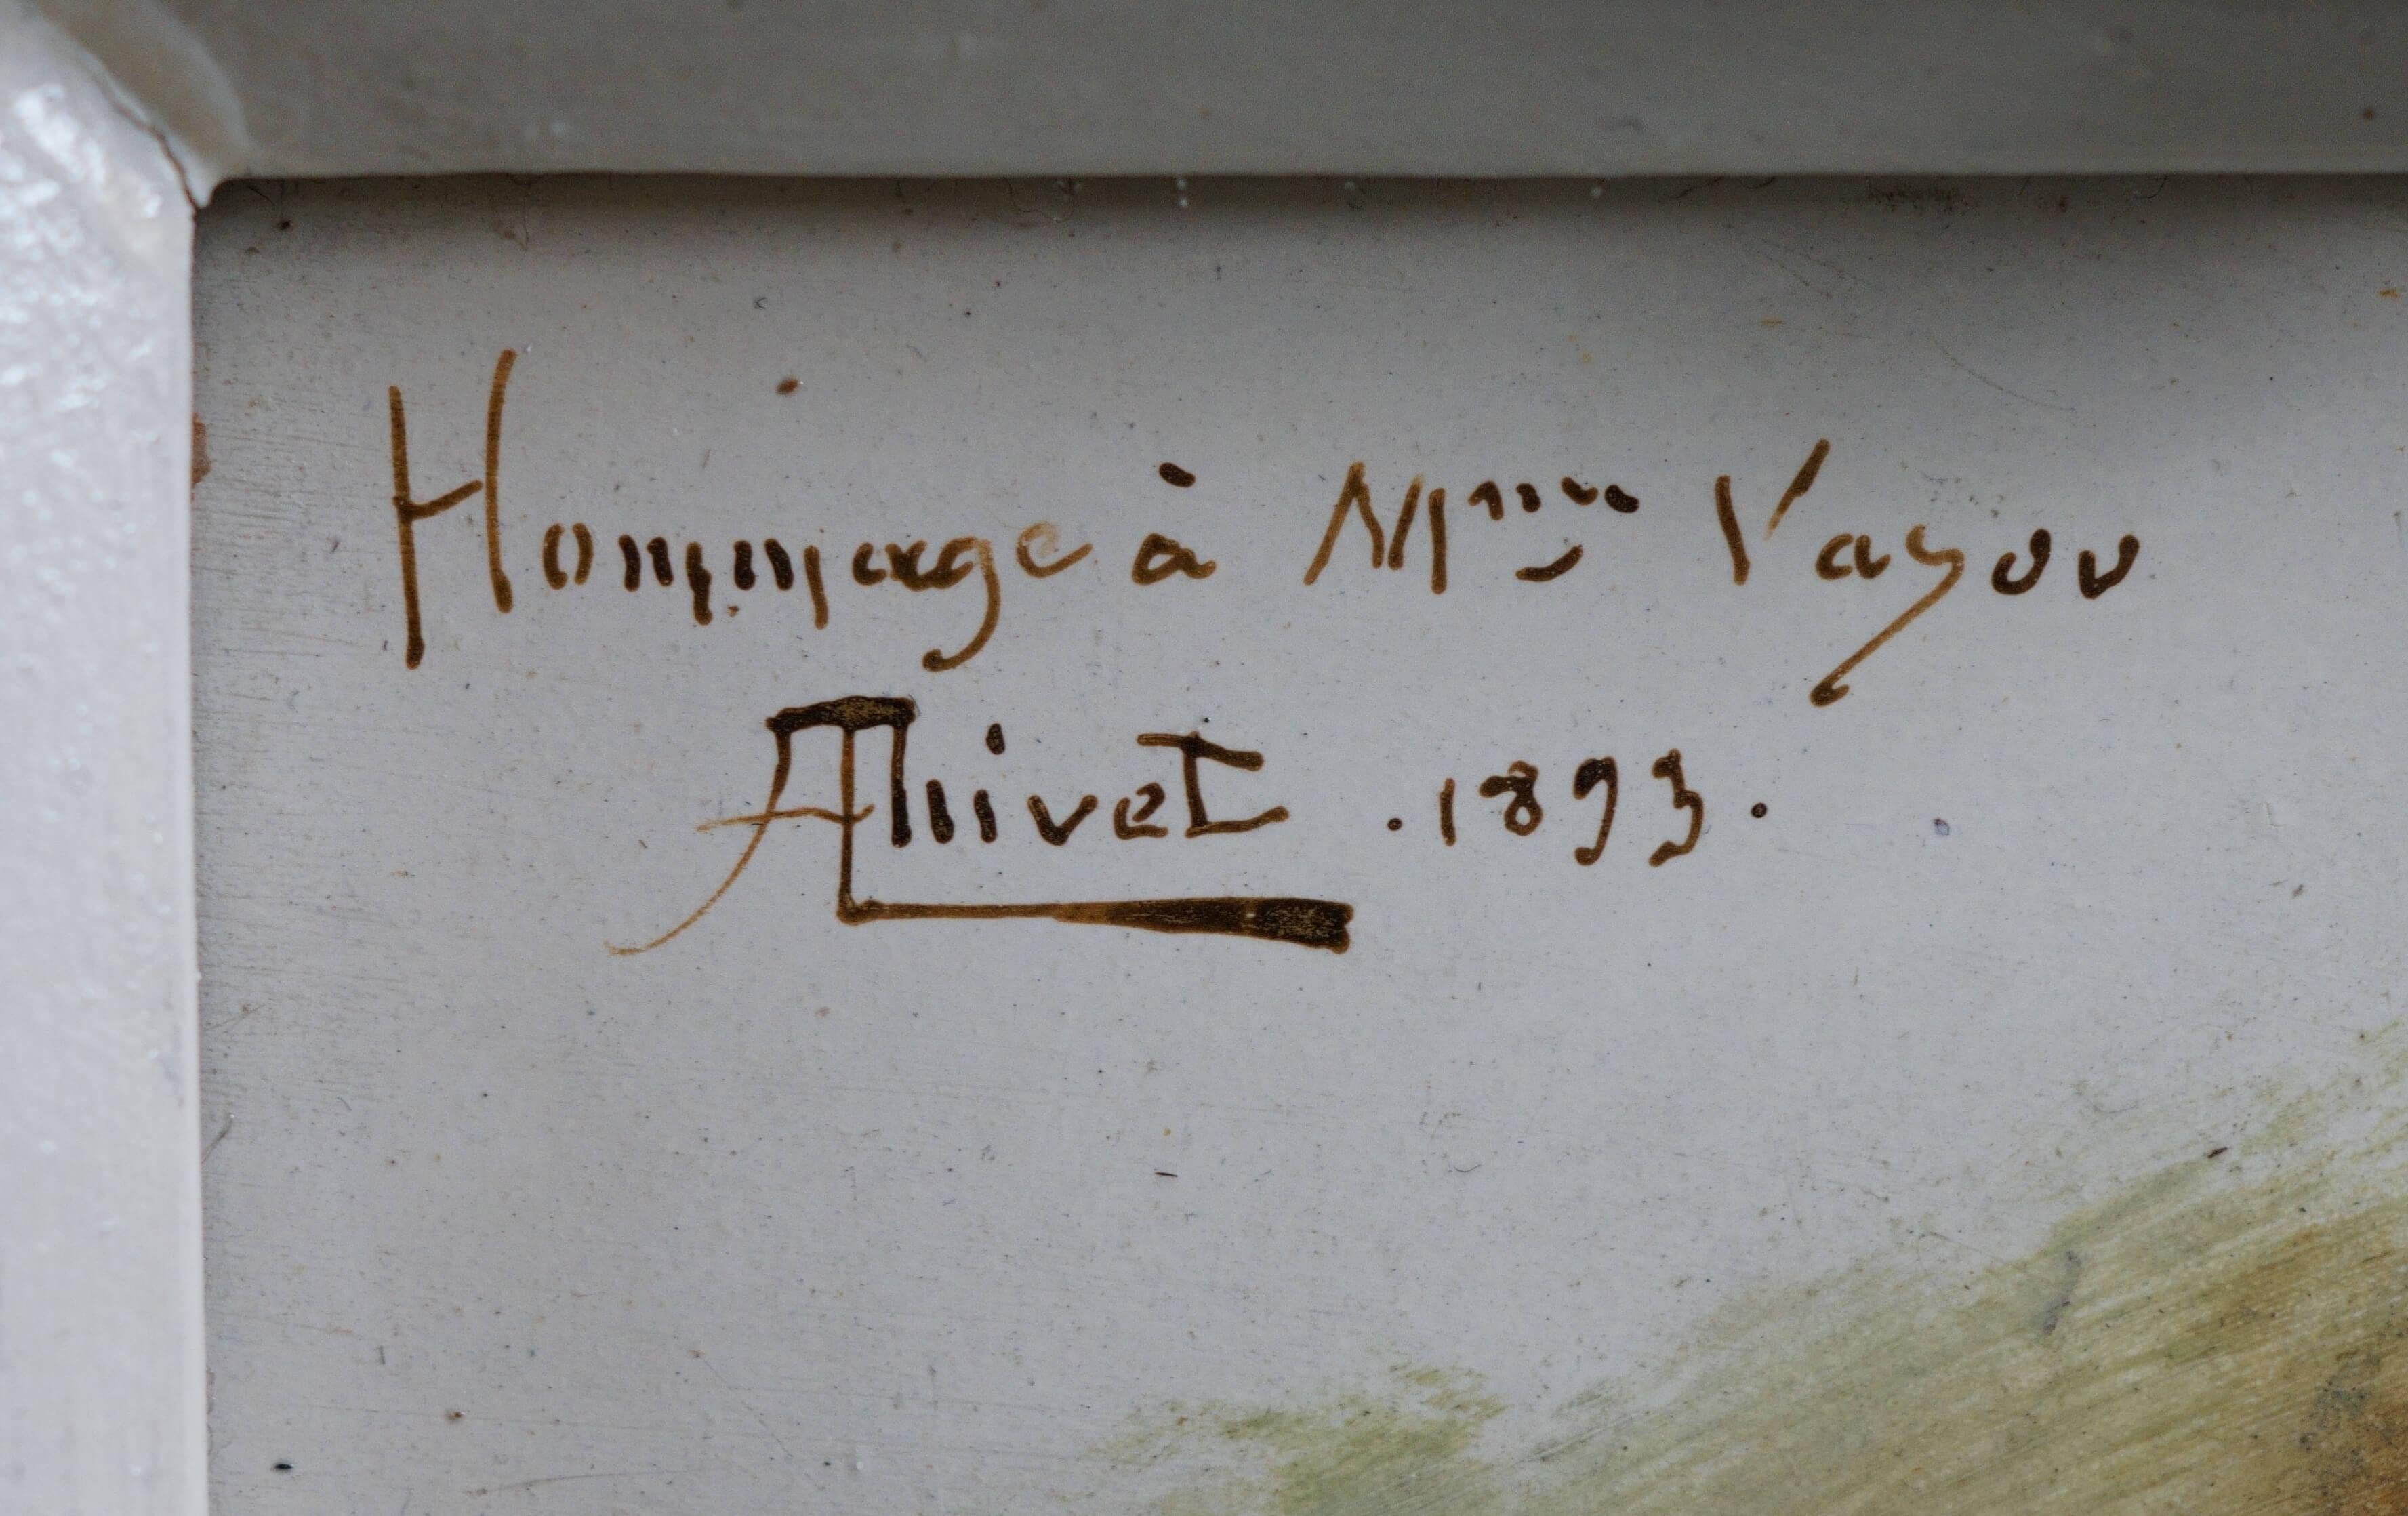 Hommage à Mme Vayou
AThivet . 1893.